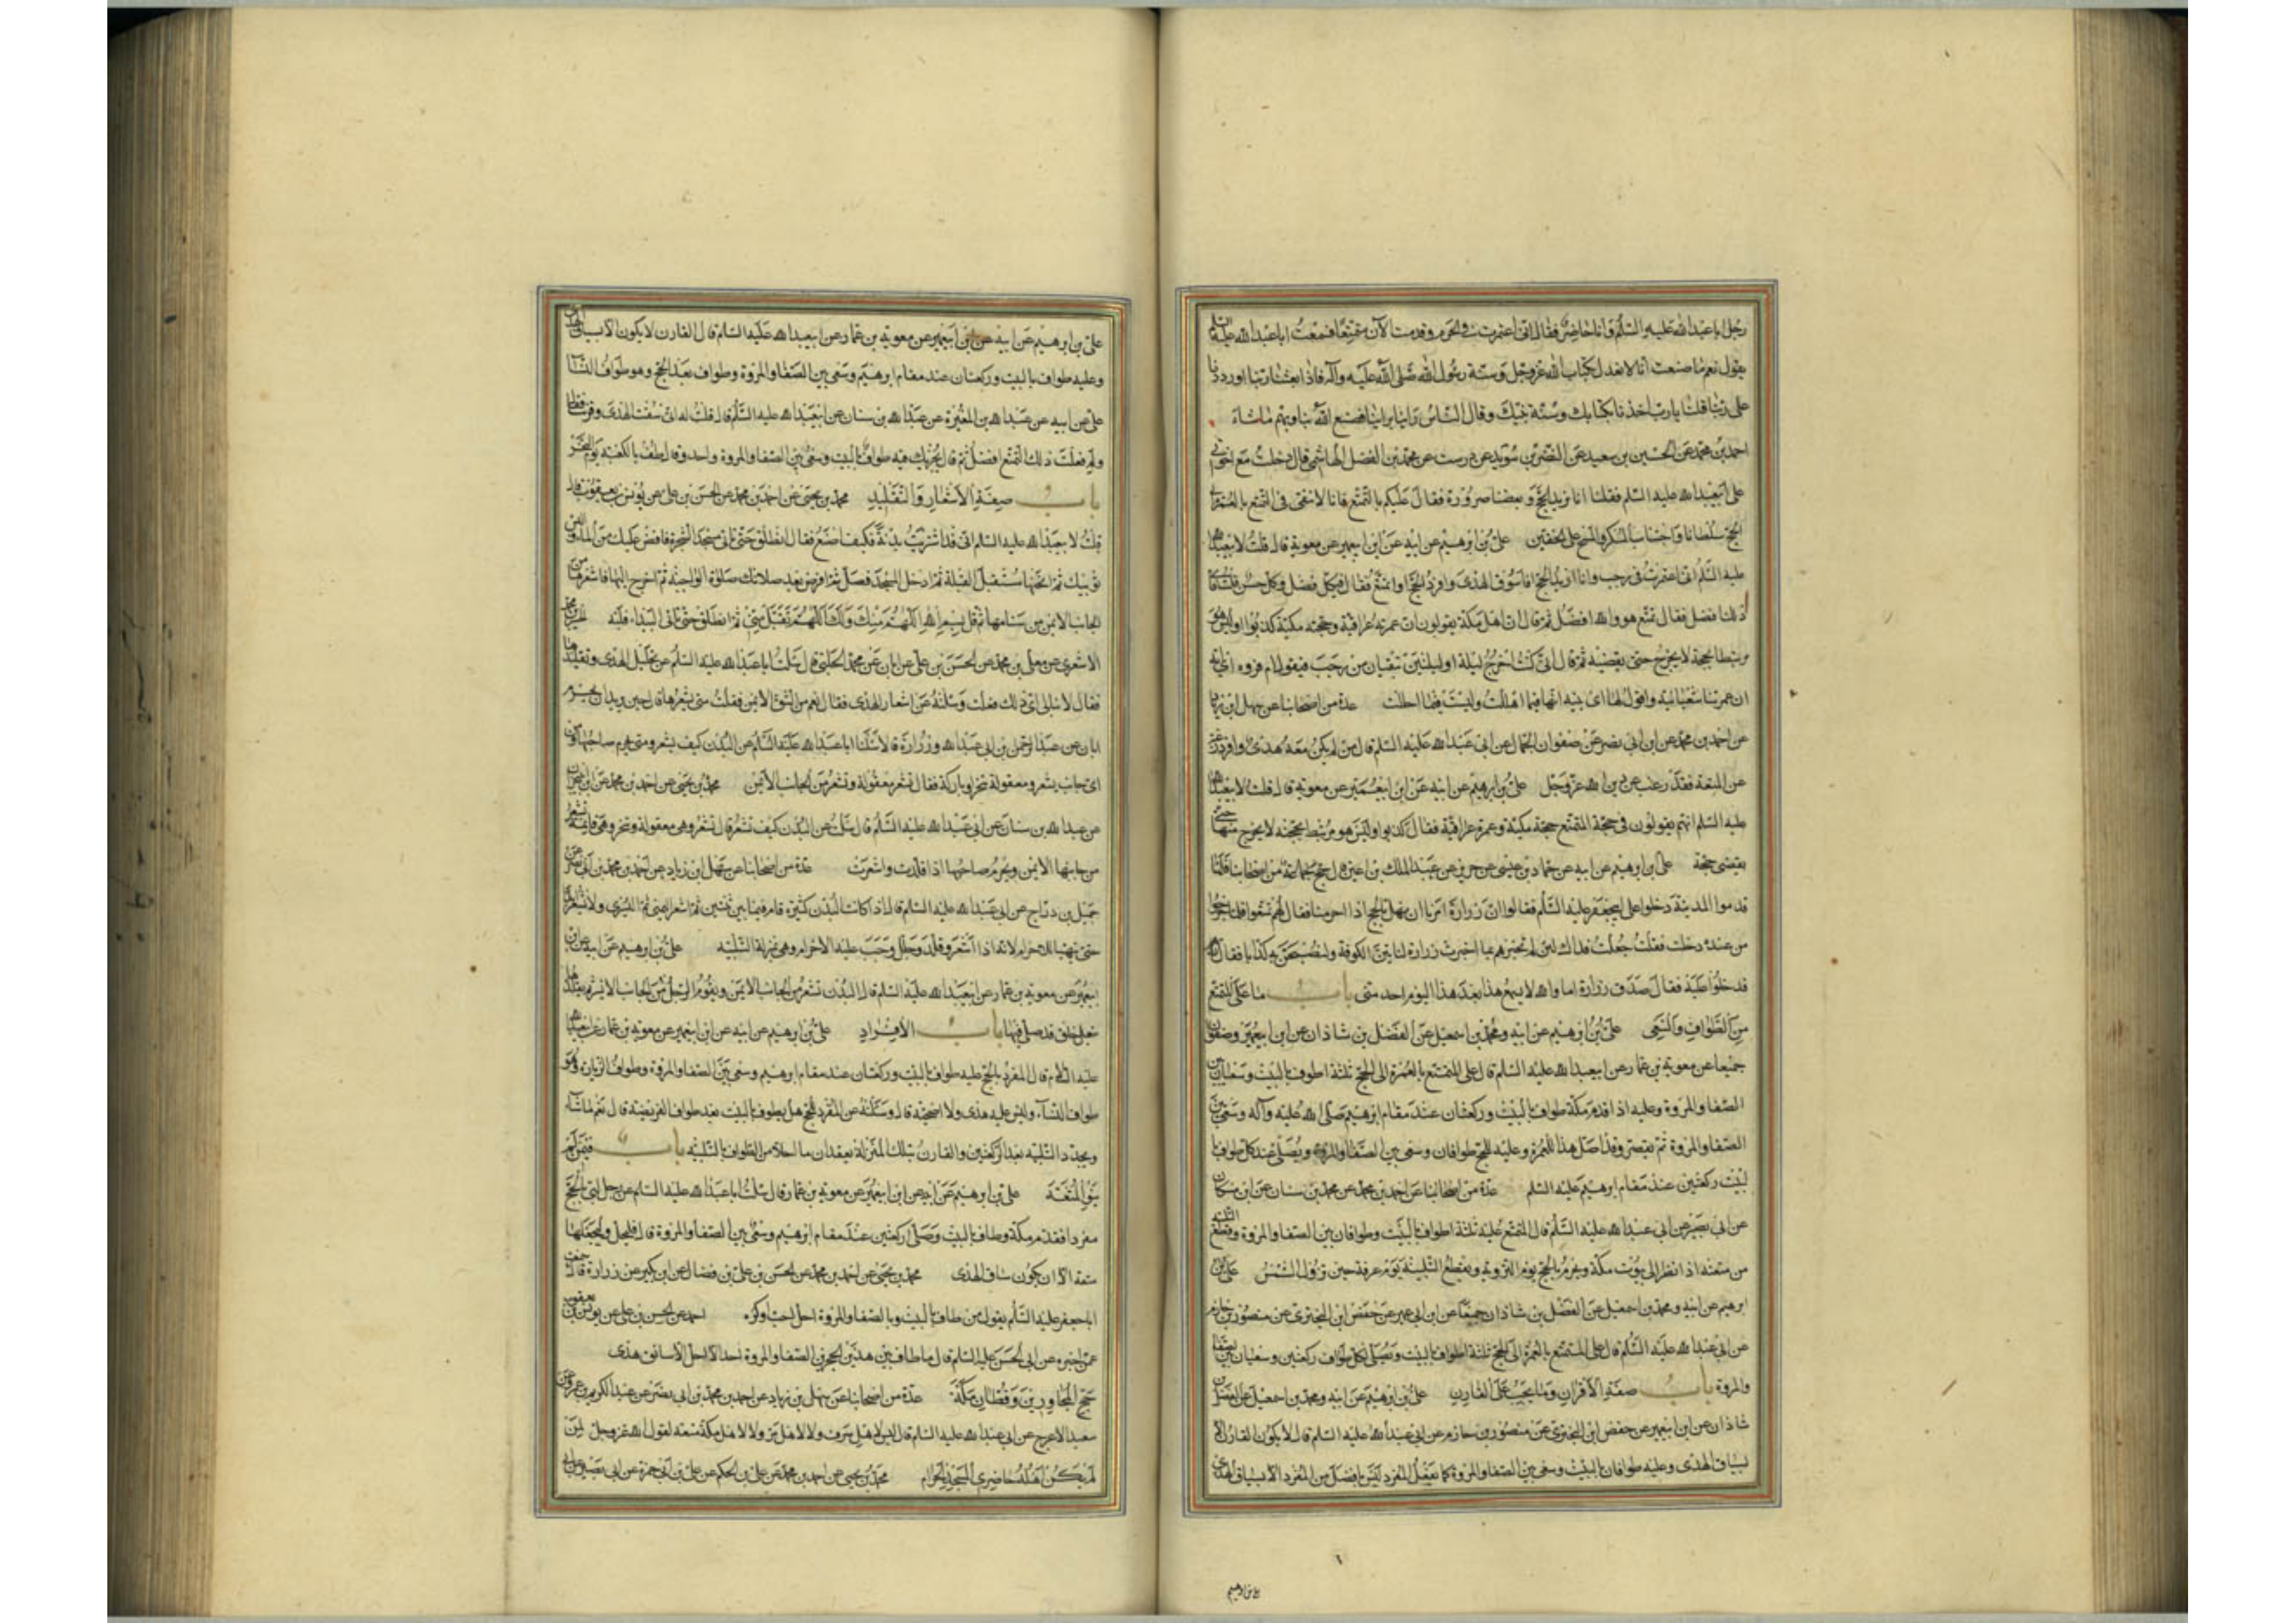 رجل ابا عبد الله عليه السلم وانا حاضر فقال انى اعتمرت فى الحرم وقدمت الآن متمتعا فسمعت ابا عبد الله عليه السلم
يقول نعم ما صنعت انا لا نعدل بكتاب الله عز وجل وسنة رسول الله صلى الله عليه وآله فاذا بعثنا ربنا او وردنا
على ربنا قلنا يا رب اخذنا بكتابك وسنة نبيك وقال الناس راينا راينا فصنع الله بنا وبهم ما شاء
احمد بن محمد عن الحسين بن سعيد عن النضر بن سويد عن درست عن محمد بن الفضل الهاشمى قال دخلت مع اخوتى
على ابيعبد الله عليه السلم فقلنا انا نريد الحج وبعضنا صرورة فقال عليكم بالتمتع فانا لا نتقى فى التمتع بالعمرة الى
الحج سلطانا واجتناب المسكر والمسح على الخفين على بن ابرهيم عن ابيه عن ابن ابيعمير عن معوية قال قلت لابيعبد الله
عليه السلم انى اعتمرت فى رجب وانا اريد الحج افاسوق الهدى وافرد الحج او اتمتع فقال فى كل فضل وكل حسن قلت فاى
ذلك افضل فقال تمتع هو والله افضل ثم قال ان اهل مكة يقولون ان عمرته عراقية وحجته مكية كذبوا اوليس هو
مرتبطا بحجه لا يخرج حتى يقضيه ثم قال انى كنت اخرج ليلة او ليلتين تبقيان من رجب فيقول ام فروه اى ابه
ان عمرتنا شعبانية واقول لها اى بنيه انها فيما اهللت وليست فيما احللت عدة من اصحابنا عن سهل ابن زياد
عن احمد بن محمد عن ابن ابى نصر عن صفوان الجمال عن ابى عبد الله عليه السلم قال من لم يكن معه هدى وافرد رغبة
عن المتعة فقد رغب عن دين الله عز وجل على بن ابرهيم عن ابيه عن ابن ابيعمير عن معوية قال قلت لابيعبد الله
عليه السلم انهم يقولون فى حجة المتمتع حجة مكية وعمرة عراقية فقال كذبوا اوليس هو مرتبط بحجته لا يخرج منها حتى
يقضى حجة على بن ابرهيم عن ابيه عن حماد بن عيسى عن حريز عن عبد الملك بن اعين قال حج جماعة من اصحابنا فلما
قدموا المدينة دخلوا على ابيجعفر عليه السلم فقالوا ان زرارة امرنا ان نهل بالحج اذا احرمنا فقال لهم تمتعوا فلما خرجوا
من عنده دخلت فقلت جعلت فداك لئن لم تخبرهم بما اخبرت زرارة لناتين الكوفة ولنصبحن به كذابا فقال
قد خلوا عليه فقال صدق زرارة اما والله لا يسمع هذا بعد هذا اليوم احد منى باب ما على المتمتع
من الطواف والسعى على بن ابرهيم عن ابيه ومحمد بن اسمعيل عن الفضل بن شاذان عن ابن ابيعمير وصفوان
جميعا عن معوية بن عمار عن ابيعبد الله عليه السلم قال على المتمتع بالعمرة الى الحج ثلثة اطواف بالبيت وسعيان بين
الصفا والمروة وعليه اذا قدم مكة طواف بالبيت وركعتان عند مقام ابرهيم صلى الله عليه وآله وسعى بين
الصفا والمروة ثم يقصر وقد احل هذا للعمرة وعليه للحج طوافان وسعى بين الصفا والمروة ويصلى عند كل طواف با
لبيت ركعتين عند مقام ابرهيم عليه السلم عدة من اصحابنا عن احمد بن محمد عن محمد بن سنان عن ابن مسكان
عن ابى بصير عن ابى عبد الله عليه السلم قال المتمتع عليه ثلثة اطواف بالبيت وطوافان بين الصفا والمروة وقطع التلبية
من متعته اذا نظر الى بيوت مكة ويحرم بالحج يوم التروية ويقطع التلبية يوم عرفة حين تزول الشمس على بن
ابرهيم عن ابيه ومحمد بن اسمعيل عن الفضل بن شاذان جميعا عن ابن ابى عمير عن حفص ابن البخترى عن منصور بن حازم
عن ابى عبد الله عليه السلم قال على المتمتع بالعمرة الى الحج ثلثة اطواف بالبيت ويصلى لكل طواف ركعتين وسعيان بين الصفا
والمروة باب صفة الاقران وما يجب على القارن على بن ابرهيم عن ابيه ومحمد بن اسمعيل عن الفضل بن
شاذان عن ابن ابيعمير عن حفص ابن البخترى عن منصور بن حازم عن ابى عبد الله عليه السلم قال لا يكون القارن الا
بسياق الهدى وعليه طوافان بالبيت وسعى بين الصفا والمروة كما يفعل المفرد ليس بافضل من المفرد الا بسياق الهدى
على بن ابرهيم
على بن ابرهيم عن ابيه عن ابن ابيعمير عن معوية بن عمار عن ابيعبد الله عليه السلم قال القارن لا يكون الا بسياق الهدى
وعليه طواف بالبيت وركعتان عند مقام ابرهيم وسعى بين الصفا والمروة وطواف بعد الحج وهو طواف النساء
على عن ابيه عن عبد الله بن المغيرة عن عبد الله بن سنان عن ابيعبد الله عليه السلم قال قلت له انى سقت الهدى وقرنت قال
ولم فعلت ذلك التمتع افضل ثم قال يجزيك فيه طواف بالبيت وسعى بين الصفا والمروة واحد وقال طف بالكعبة يوم النحر
باب صفة الاشعار والتقليد محمد بن يحيى عن احمد بن محمد عن الحسن بن على عن يونس بن يعقوب قال
قلت لابيعبد الله عليه السلم انى قد اشتريت بدنة فكيف اصنع فقال انطلق حتى تاتى مسجد الشجرة فافض عليك من الماء والبس
ثوبيك ثم انخها مستقبل القبلة ثم ادخل المسجد فصل ثم افرض بعد صلاتك صلوة الواجبة ثم اخرج اليها فاشعرها من
الجانب الايمن من سنامها ثم قل بسم الله اللهم منك ولك اللهم تقبل منى ثم انطلق حتى تاتى البيداء فلبه الحسين بن محمد
الاشعرى عن معلى بن محمد عن الحسن بن على عن ابان عن محمد الحلبى قال سالت ابا عبد الله عليه السلم عن تجليل الهدى وتقليدها
فقال لا تبالى اى ذلك فعلت وسئلته عن اشعار الهدى فقال نعم من الشق الايمن فقلت متى يشعرها قال حين يريد ان يحرم
ابان عن عبد الرحمن بن ابى عبد الله وزرارة قالا سئلنا ابا عبد الله عليه السلم عن البدن كيف يشعر ومتى يحرم صاحبها ومن
اى جانب يشعر ومعقولة تنحر او باركة فقال تشعر معقولة وتشعر من الجانب الايمن محمد بن يحيى عن احمد بن محمد عن ابن محبوب
عن عبد الله بن سنان عن ابى عبد الله عليه السلم قال سالت عن البدن كيف تشعر قال تشعر وهى معقولة وتنحر وهى قايمة تشعر
من جانبها الايمن ويحرم صاحبها اذا قلدت واشعرت عدة من اصحابنا عن سهل ابن زياد عن احمد بن محمد بن ابى نصر عن
جميل بن دراج عن ابى عبد الله عليه السلم قال اذا كانت البدن كثيرة قام فيما بين ثنتين ثم اشعر اليمنى ثم اليسرى ولا تشعر ابدا
حتى يتهيا للاحرام لانه اذا اشعر وقلد وجلل وجب عليه الاحرام وهى بمنزلة التلبيه على بن ابرهيم عن ابيه عن ابن
ابيعمير عن معوية بن عمار عن ابيعبد الله عليه السلم قال البدن تشعر من الجانب الايمن ويقوم الرجل من الجانب الايسر ثم يقلدها
بنعل خلق قد صلى فيها باب الافراد على بن ابرهيم عن ابيه عن ابن ابيعمير عن معوية بن عمار عن ابيعبد الله
عليه السلام قال المفرد بالحج عليه طواف بالبيت وركعتان عند مقام ابرهيم وسعى بين الصفا والمروة وطواف الزيارة وهو
طواف النساء وليس عليه هدى ولا اضحية قال وسئلته عن المفرد للحج هل يطوف بالبيت بعد طواف الفريضة قال نعم ما شاء
ويجدد التلبيه بعد الركعتين والقارن بتلك المنزلة يعقدان ما احلا من الطواف بالتلبيه باب فيمن لم
ينو المتعة على بن ابرهيم عن ابيه عن ابن ابيعمير عن معوية بن عمار قال سئلت ابا عبد الله عليه السلم عن رجل لبى بالحج
مفردا فقدم مكة وطاف بالبيت وصلى ركعتين عند مقام ابرهيم وسعى بين الصفا والمروة قال فليحل وليجعلها
متعة الا ان يكون ساق الهدى محمد بن يحيى عن احمد بن محمد عن الحسن بن على بن فضال عن ابن بكير عن زرارة قال سمعت
ابا جعفر عليه السلم يقول من طاف بالبيت وبالصفا والمروة احل احب او كره احمد عن الحسن بن على عن يونس بن يعقوب
عمن اخبره عن ابى الحسن عليه السلم قال ما طاف بين هذين الحجرين الصفا والمروة احد الا احل الا سائق هدى
حج المجاورين وقطان مكة عدة من اصحابنا عن سهل بن زياد عن احمد بن محمد بن ابى نصر عن عبد الكريم بن عمرو عن
سعيد الاعرج عن ابى عبد الله عليه السلم قال ليس لاهل سرف ولا لاهل مر ولا لاهل مكة متعة لقول الله عز وجل لمن
لم يكن اهله حاضرى المسجد الحرام محمد بن يحيى عن احمد بن محمد عن على بن الحكم عن على بن ابى حمزة عن ابى بصير عن ابى